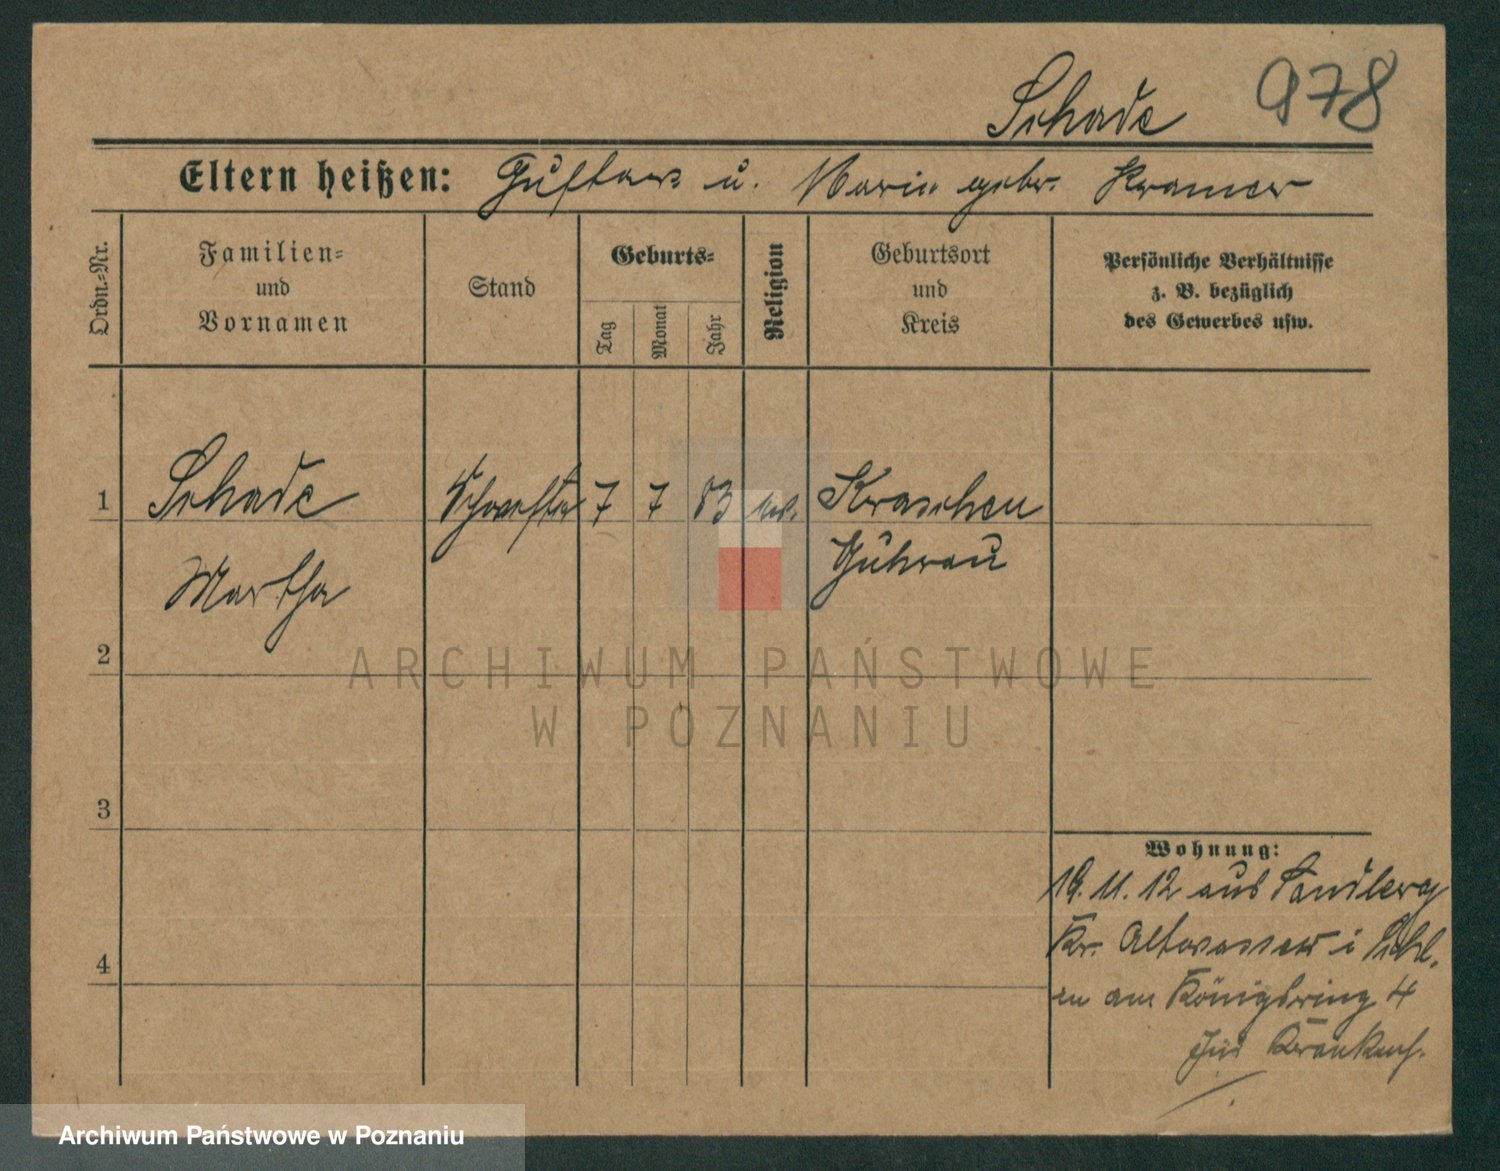 Schade 978
Eltern heißen: Gustav u. Marie geb. Kramer
Ordn.-Nr.
Familien=
und
Vornamen
Stand
Geburts=
Tag
Monat
Jahr
Religion
Geburtsort
und
Kreis
Persönliche Verhältnisse
z. B. bezüglich
des Gewerbes usw.
1 Schade Schwester 7 7 83 Kraschen
Guhrau
Martha
2
3
4
ARCHIWUM PAŃSTWOWE
W POZNANIU
Wohnung:
19. 11. 12 aus Sandberg
Kr. Altwasser i Schl.
am Königsring 4
Archiwum Państwowe w Poznaniu